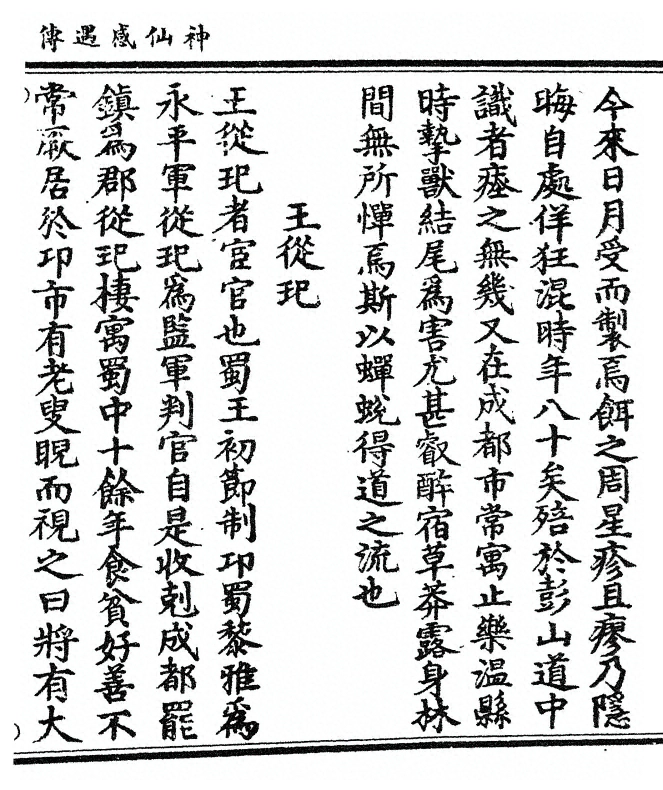 神仙感遇傳
今來日月受而製焉餌之周星疹且瘳乃隱
晦自處佯狂混時年八十矣殕於彭山道中
識者瘞之無幾又在成都市常寓止樂溫縣
時摯獸結尾為害尤甚叡醉宿草莽露身林
間無所憚焉斯以蟬蛻得道之流也
王從玘
王從玘者宦官也蜀王初節制卭蜀黎雅為
永平軍從玘為監軍判官自是收剋成都罷
鎮為郡從玘棲寓蜀中十餘年食貧好善不
常厥居於卭市有老叟睨而視之曰將有大